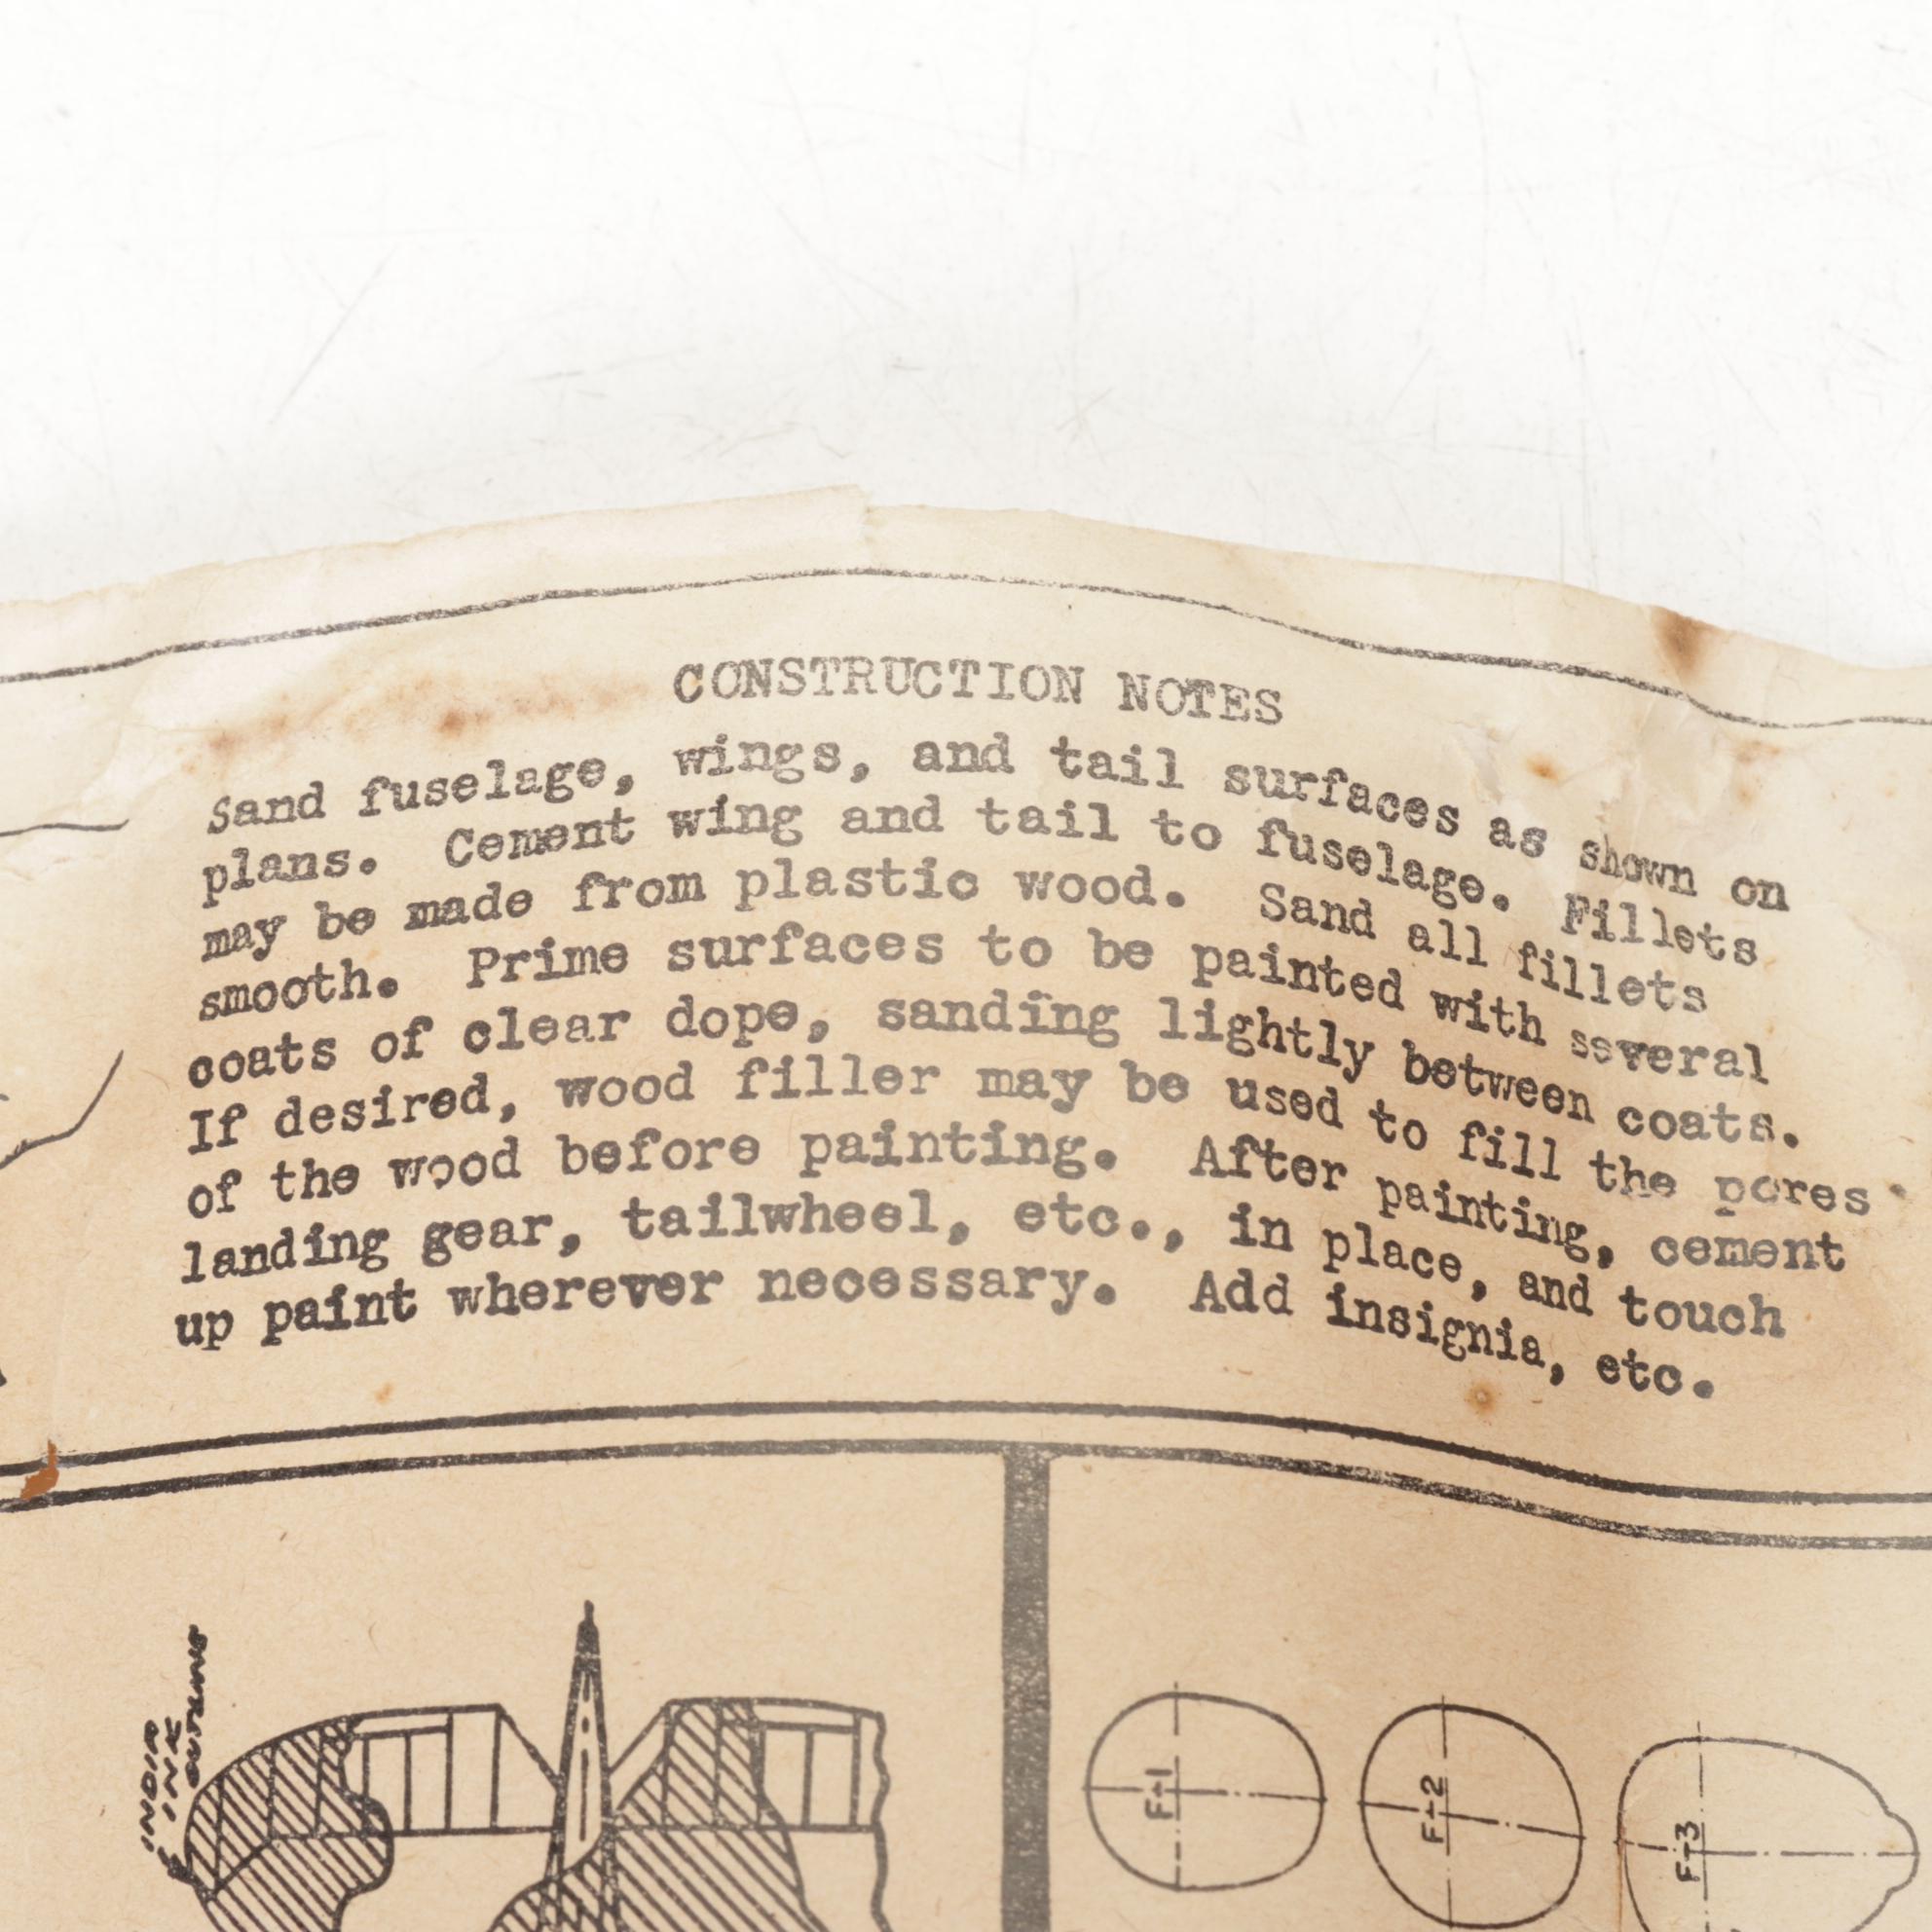 CONSTRUCTION NOTES
Sand fuselage, wings, and tail surfaces as shown on
plans. Cement wing and tail to fuselage. Fillets
may be made from plastic wood. Sand all fillets
smooth. Prime surfaces to be painted with several
coats of clear dope, sanding lightly between coats.
If desired, wood filler may be used to fill the pores
of the wood before painting. After painting, cement
landing gear, tailwheel, etc., in place, and touch
up paint wherever necessary. Add insignia, etc.
INDIA
INK
OUTLINE
F-1
F-2
F-3